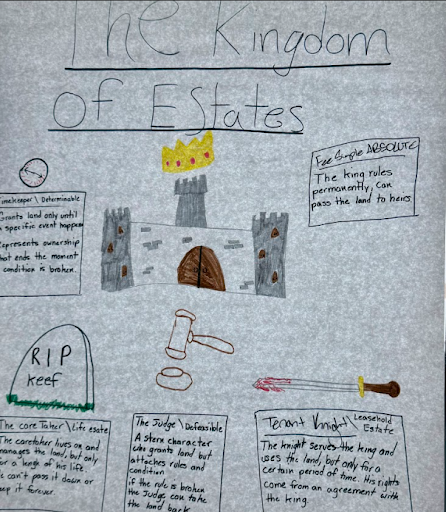 The Kingdom
of Estates
Fee Simple ABSOLUTE
The king rules
permanently, can
pass the land to heirs
imekeeper \ Determinable
Grants land only until
specific event happen
epresents ownership
hat ends the moment
condition is broken.
RIP
Keef
The care Taker / Life esate
The caretaker lives on and
manages the land, but only
or a lengh of his life
e can't pass it down or
eep it forever
The Judge \ Defeasible
A stern character
who grants land but
attaches rules and
condition
if the rule is broken
the Judge can take
the land back
Tenant Knight \ Leasehold
Estate
The knight serves the king and
uses the land, but only for a
certain period of time. His rights
come from an agreement with
the king